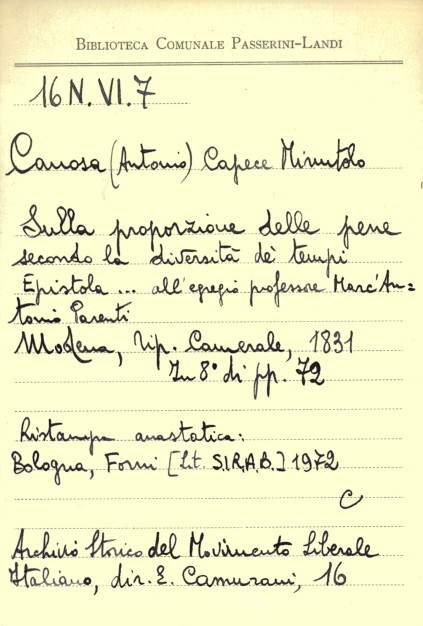 BIBLIOTECA COMUNALE PASSERINI-LANDI
16 N. VI. 7
Canosa (Antonio) Capece Minutolo
Sulla proporzione delle pene
secondo la diversità de' tempi
Epistola ... all'egregio professore Marc'An=
tonio Parenti
Modena, Tip. Camerale, 1831
In 8° di pp. 72
Ristampa anastatica:
Bologna, Forni [Lit. S.I.R.A.B.] 1972
C
Archivio Storico del Movimento Liberale
Italiano, dir. E. Camurani, 16